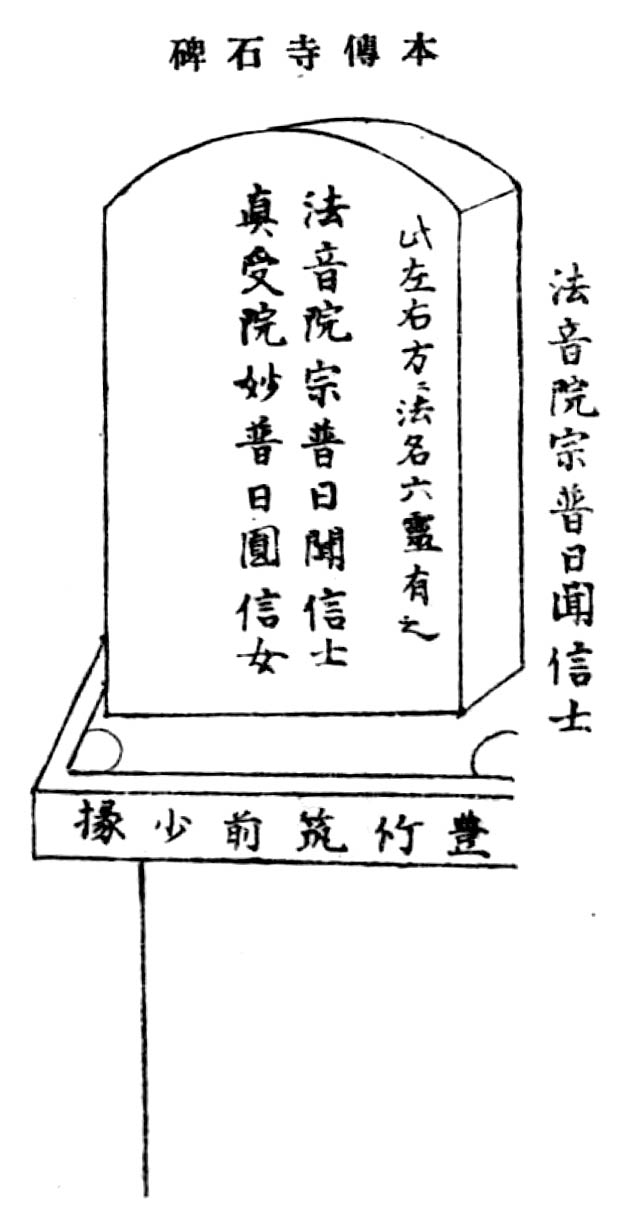 本傳寺石碑
法音院宗普日聞信士
此左右方ニ法名六靈有之
法音院宗普日聞信士
眞受院妙普日圓信女
豊竹筑前少掾